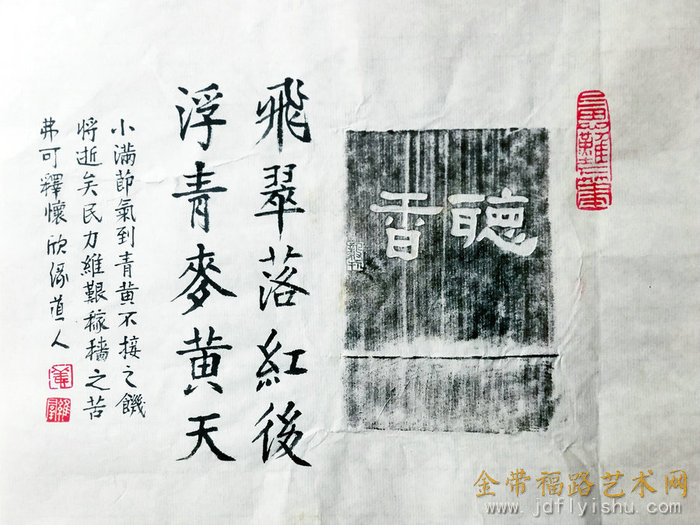 聽香
飛翠落紅後
浮青麥黃天
小滿節氣到青黃不接之饑
將逝矣民力維艱稼穡之苦
弗可釋懷欣涤道人
金带福路艺术网
www.jdflyishu.com